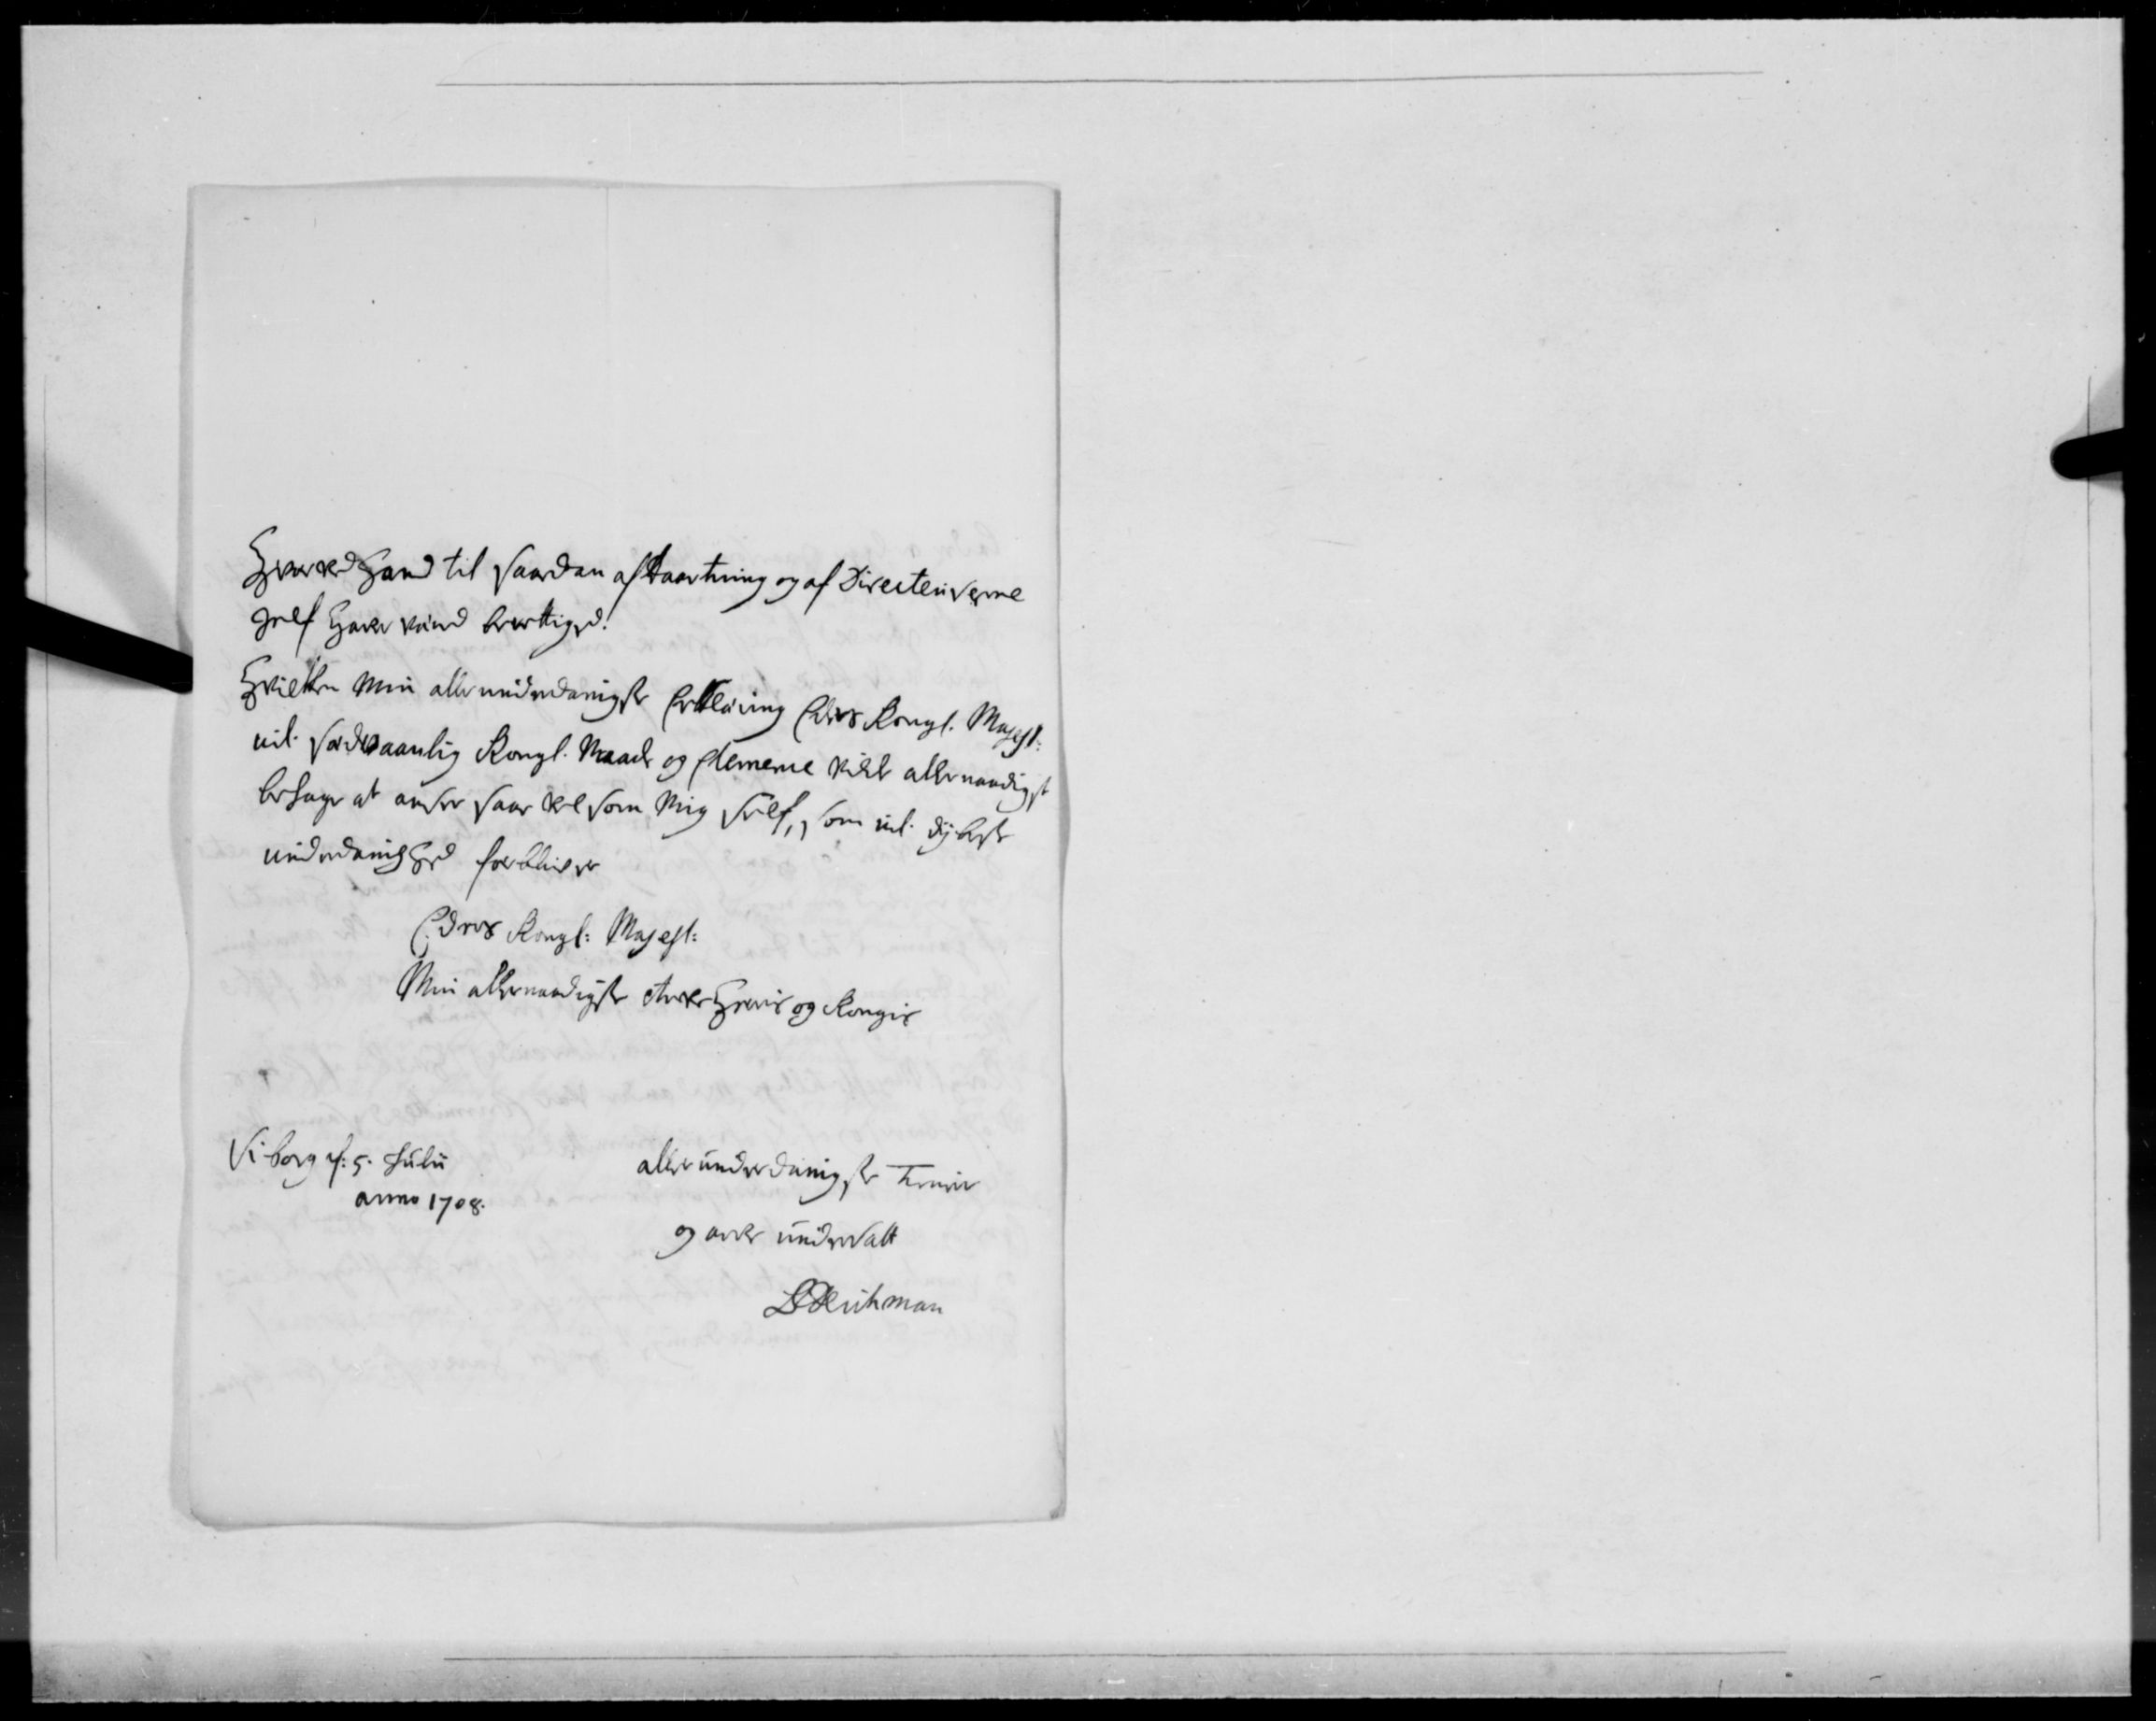 Hvorved hand til saadan afkaartning og af Directeuverne
self haver været berettiged.
Hvilken min allerunderdanigste Erklæring Eders Kongl. Majest:
vil. sædvaanlig Kongl. Naade og Clemence vilde allernaadigst
behage at ansee saavelsom mig self, som vil. dybeste
underdanighed forbliver
Eders Kongl: Majest:
Min allernaadigste Arve Herris og Kongis
Viborg d: 5. Julii
anno 1708.
allerunderdanigste Troe
og arve undersatt